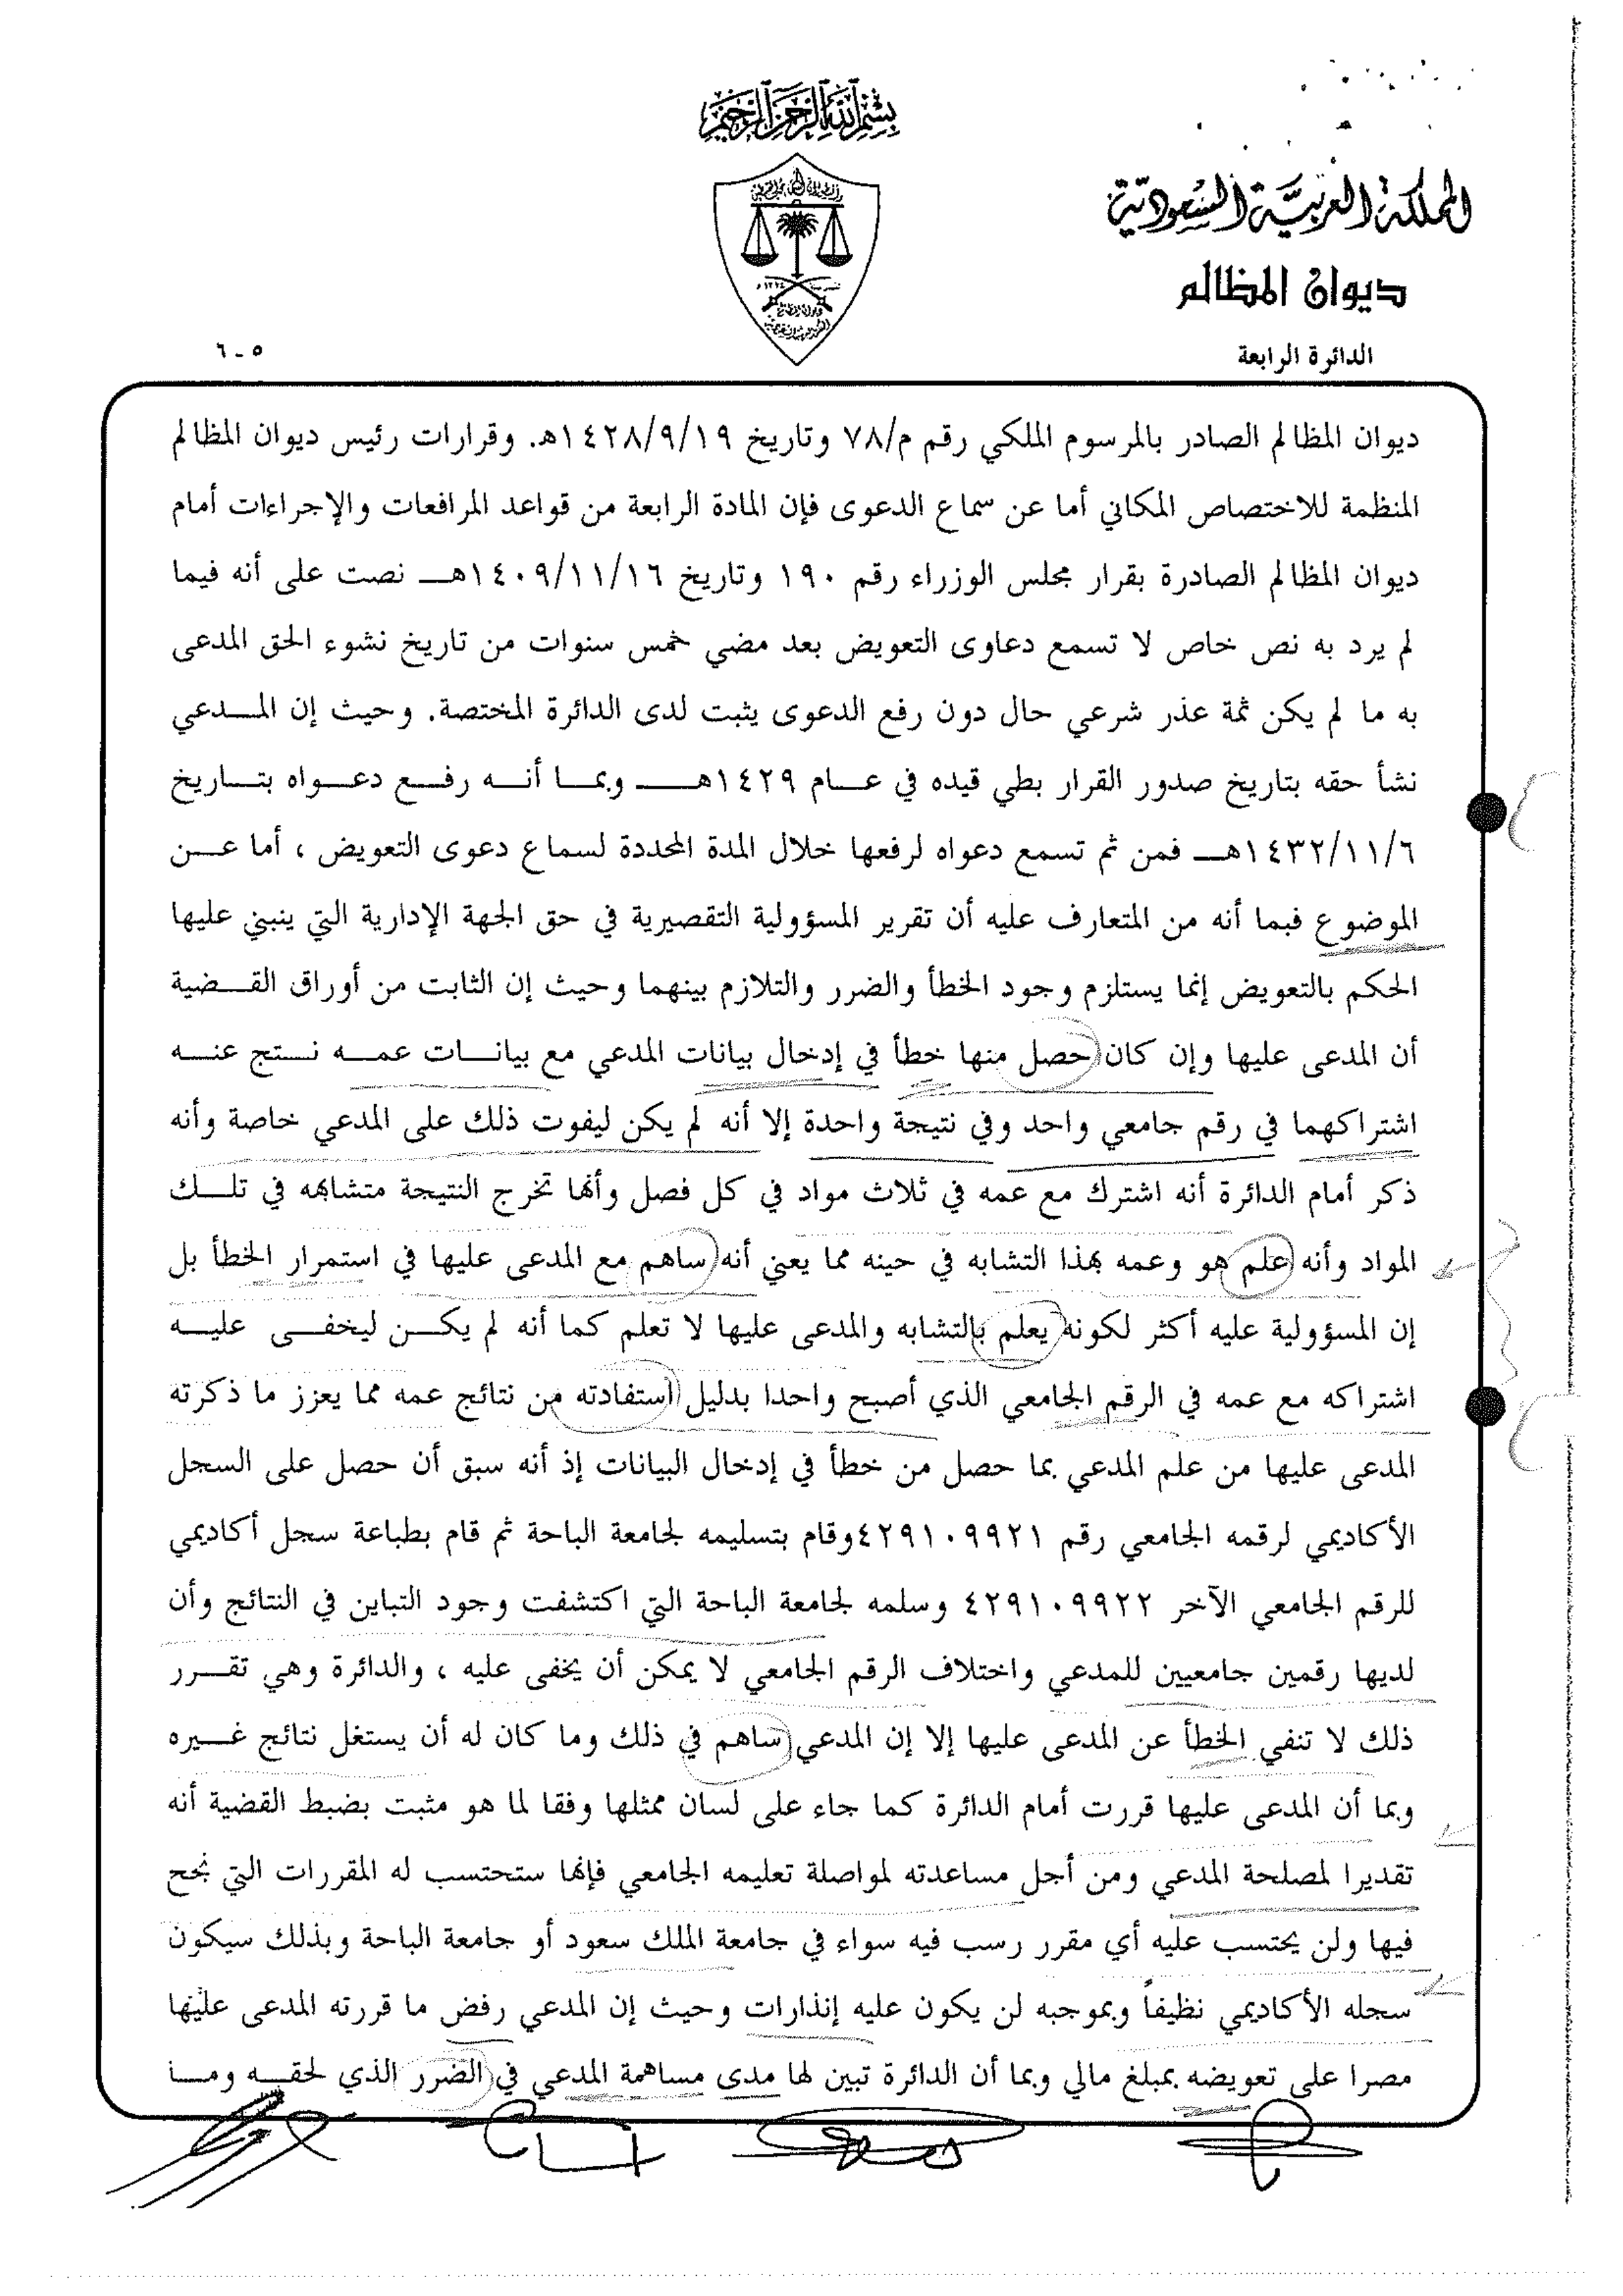 بسم الله الرحمن الرحيم
المملكة العربية السعودية
ديوان المظالم
الدائرة الرابعة
٥ - ٦
ديوان المظالم الصادر بالمرسوم الملكي رقم م/٧٨ وتاريخ ١٤٢٨/٩/١٩هـ. وقرارات رئيس ديوان المظالم
المنظمة للاختصاص المكاني أما عن سماع الدعوى فإن المادة الرابعة من قواعد المرافعات والإجراءات أمام
ديوان المظالم الصادرة بقرار مجلس الوزراء رقم ١٩٠ وتاريخ ١٤٠٩/١١/١٦هـ نصت على أنه فيما
لم يرد به نص خاص لا تسمع دعاوى التعويض بعد مضي خمس سنوات من تاريخ نشوء الحق المدعى
به ما لم يكن ثمة عذر شرعي حال دون رفع الدعوى يثبت لدى الدائرة المختصة. وحيث إن المدعي
نشأ حقه بتاريخ صدور القرار بطي قيده في عام ١٤٢٩هـ وبما أنه رفع دعواه بتاريخ
١٤٣٢/١١/٦هـ فمن ثم تسمع دعواه لرفعها خلال المدة المحددة لسماع دعوى التعويض ، أما عن
الموضوع فبما أنه من المتعارف عليه أن تقرير المسؤولية التقصيرية في حق الجهة الإدارية التي ينبني عليها
الحكم بالتعويض إنما يستلزم وجود الخطأ والضرر والتلازم بينهما وحيث إن الثابت من أوراق القضية
أن المدعى عليها وإن كان حصل منها خطأ في إدخال بيانات المدعي مع بيانات عمه نستج عنه
اشتراكهما في رقم جامعي واحد وفي نتيجة واحدة إلا أنه لم يكن ليفوت ذلك على المدعي خاصة وأنه
ذكر أمام الدائرة أنه اشترك مع عمه في ثلاث مواد في كل فصل وأنها تخرج النتيجة متشابهه في تلك
المواد وأنه علم هو وعمه بهذا التشابه في حينه مما يعني أنه ساهم مع المدعى عليها في استمرار الخطأ بل
إن المسؤولية عليه أكثر لكونه يعلم بالتشابه والمدعى عليها لا تعلم كما أنه لم يكن ليخفى عليه
اشتراكه مع عمه في الرقم الجامعي الذي أصبح واحدا بدليل استفادته من نتائج عمه مما يعزز ما ذكرته
المدعى عليها من علم المدعي بما حصل من خطأ في إدخال البيانات إذ أنه سبق أن حصل على السجل
الأكاديمي لرقمه الجامعي رقم ٤٢٩١٠٩٩٢١وقام بتسليمه لجامعة الباحة ثم قام بطباعة سجل أكاديمي
للرقم الجامعي الآخر ٤٢٩١٠٩٩٢٢ وسلمه لجامعة الباحة التي اكتشفت وجود التباين في النتائج وأن
لديها رقمين جامعيين للمدعي واختلاف الرقم الجامعي لا يمكن أن يخفى عليه ، والدائرة وهي تقرر
ذلك لا تنفي الخطأ عن المدعى عليها إلا إن المدعي ساهم في ذلك وما كان له أن يستغل نتائج غيره
وبما أن المدعى عليها قررت أمام الدائرة كما جاء على لسان ممثلها وفقا لما هو مثبت بضبط القضية أنه
تقديرا لمصلحة المدعي ومن أجل مساعدته لمواصلة تعليمه الجامعي فإنها ستحتسب له المقررات التي نجح
فيها ولن يحتسب عليه أي مقرر رسب فيه سواء في جامعة الملك سعود أو جامعة الباحة وبذلك سيكون
سجله الأكاديمي نظيفاً وبموجبه لن يكون عليه إنذارات وحيث إن المدعي رفض ما قررته المدعى عليها
مصرا على تعويضه بمبلغ مالي وبما أن الدائرة تبين لها مدى مساهمة المدعي في الضرر الذي لحقه وما